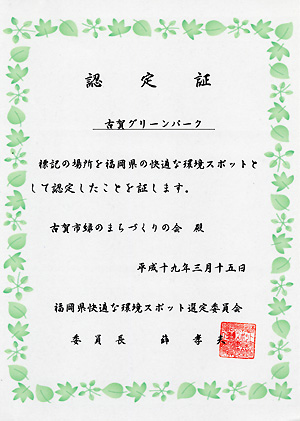 認定証
古賀グリーンパーク
標記の場所を福岡県の快適な環境スポットと
して認定したことを証します。
古賀市緑のまちづくりの会 殿
平成十九年三月十五日
福岡県快適な環境スポット選定委員会
委員長 薛 孝夫